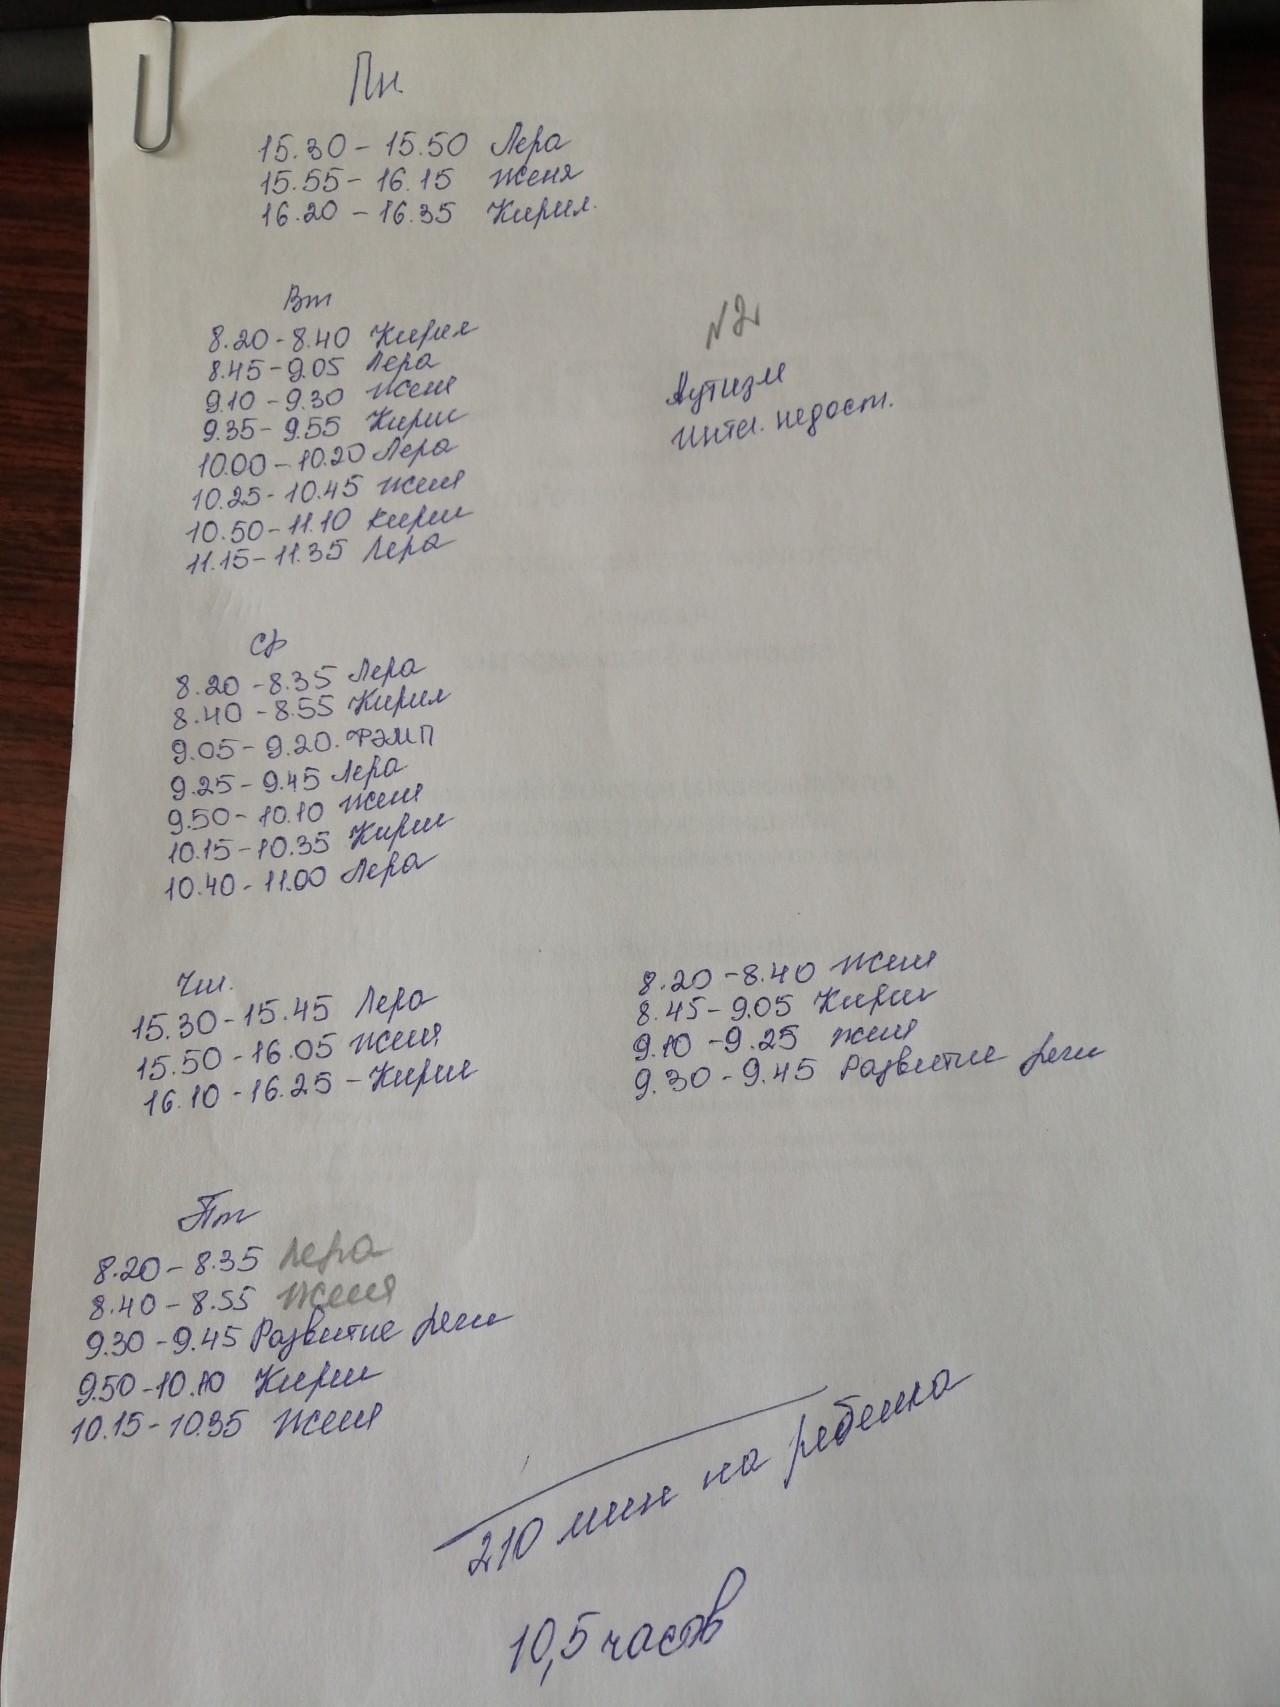 Пн.
15.30 - 15.50 Лера
15.55 - 16.15 Женя
16.20 - 16.35 Кирил.
Вт
8.20 - 8.40 Кирил
8.45 - 9.05 Лера
9.10 - 9.30 Женя
9.35 - 9.55 Кирил
10.00 - 10.20 Лера
10.25 - 10.45 Женя
10.50 - 11.10 Кирил
11.15 - 11.35 Лера
N2
Аутизм
Интел. недост.
Ср
8.20 - 8.35 Лера
8.40 - 8.55 Кирил
9.05 - 9.20. ФЭМП
9.25 - 9.45 Лера
9.50 - 10.10 Женя
10.15 - 10.35 Кирил
10.40 - 11.00 Лера
Чт.
15.30 - 15.45 Лера
15.50 - 16.05 Женя
16.10 - 16.25 - Кирил
8.20 - 8.40 Женя
8.45 - 9.05 Кирил
9.10 - 9.25 Женя
9.30 - 9.45 Развитие речи
Пт
8.20 - 8.35 Лера
8.40 - 8.55 Женя
9.30 - 9.45 Развитие речи
9.50 - 10.10 Кирил
10.15 - 10.35 Женя
210 мин на ребенка
10,5 часов